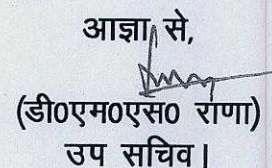 आज्ञा से,
(डी0एम0एस0 राणा)
उप सचिव।